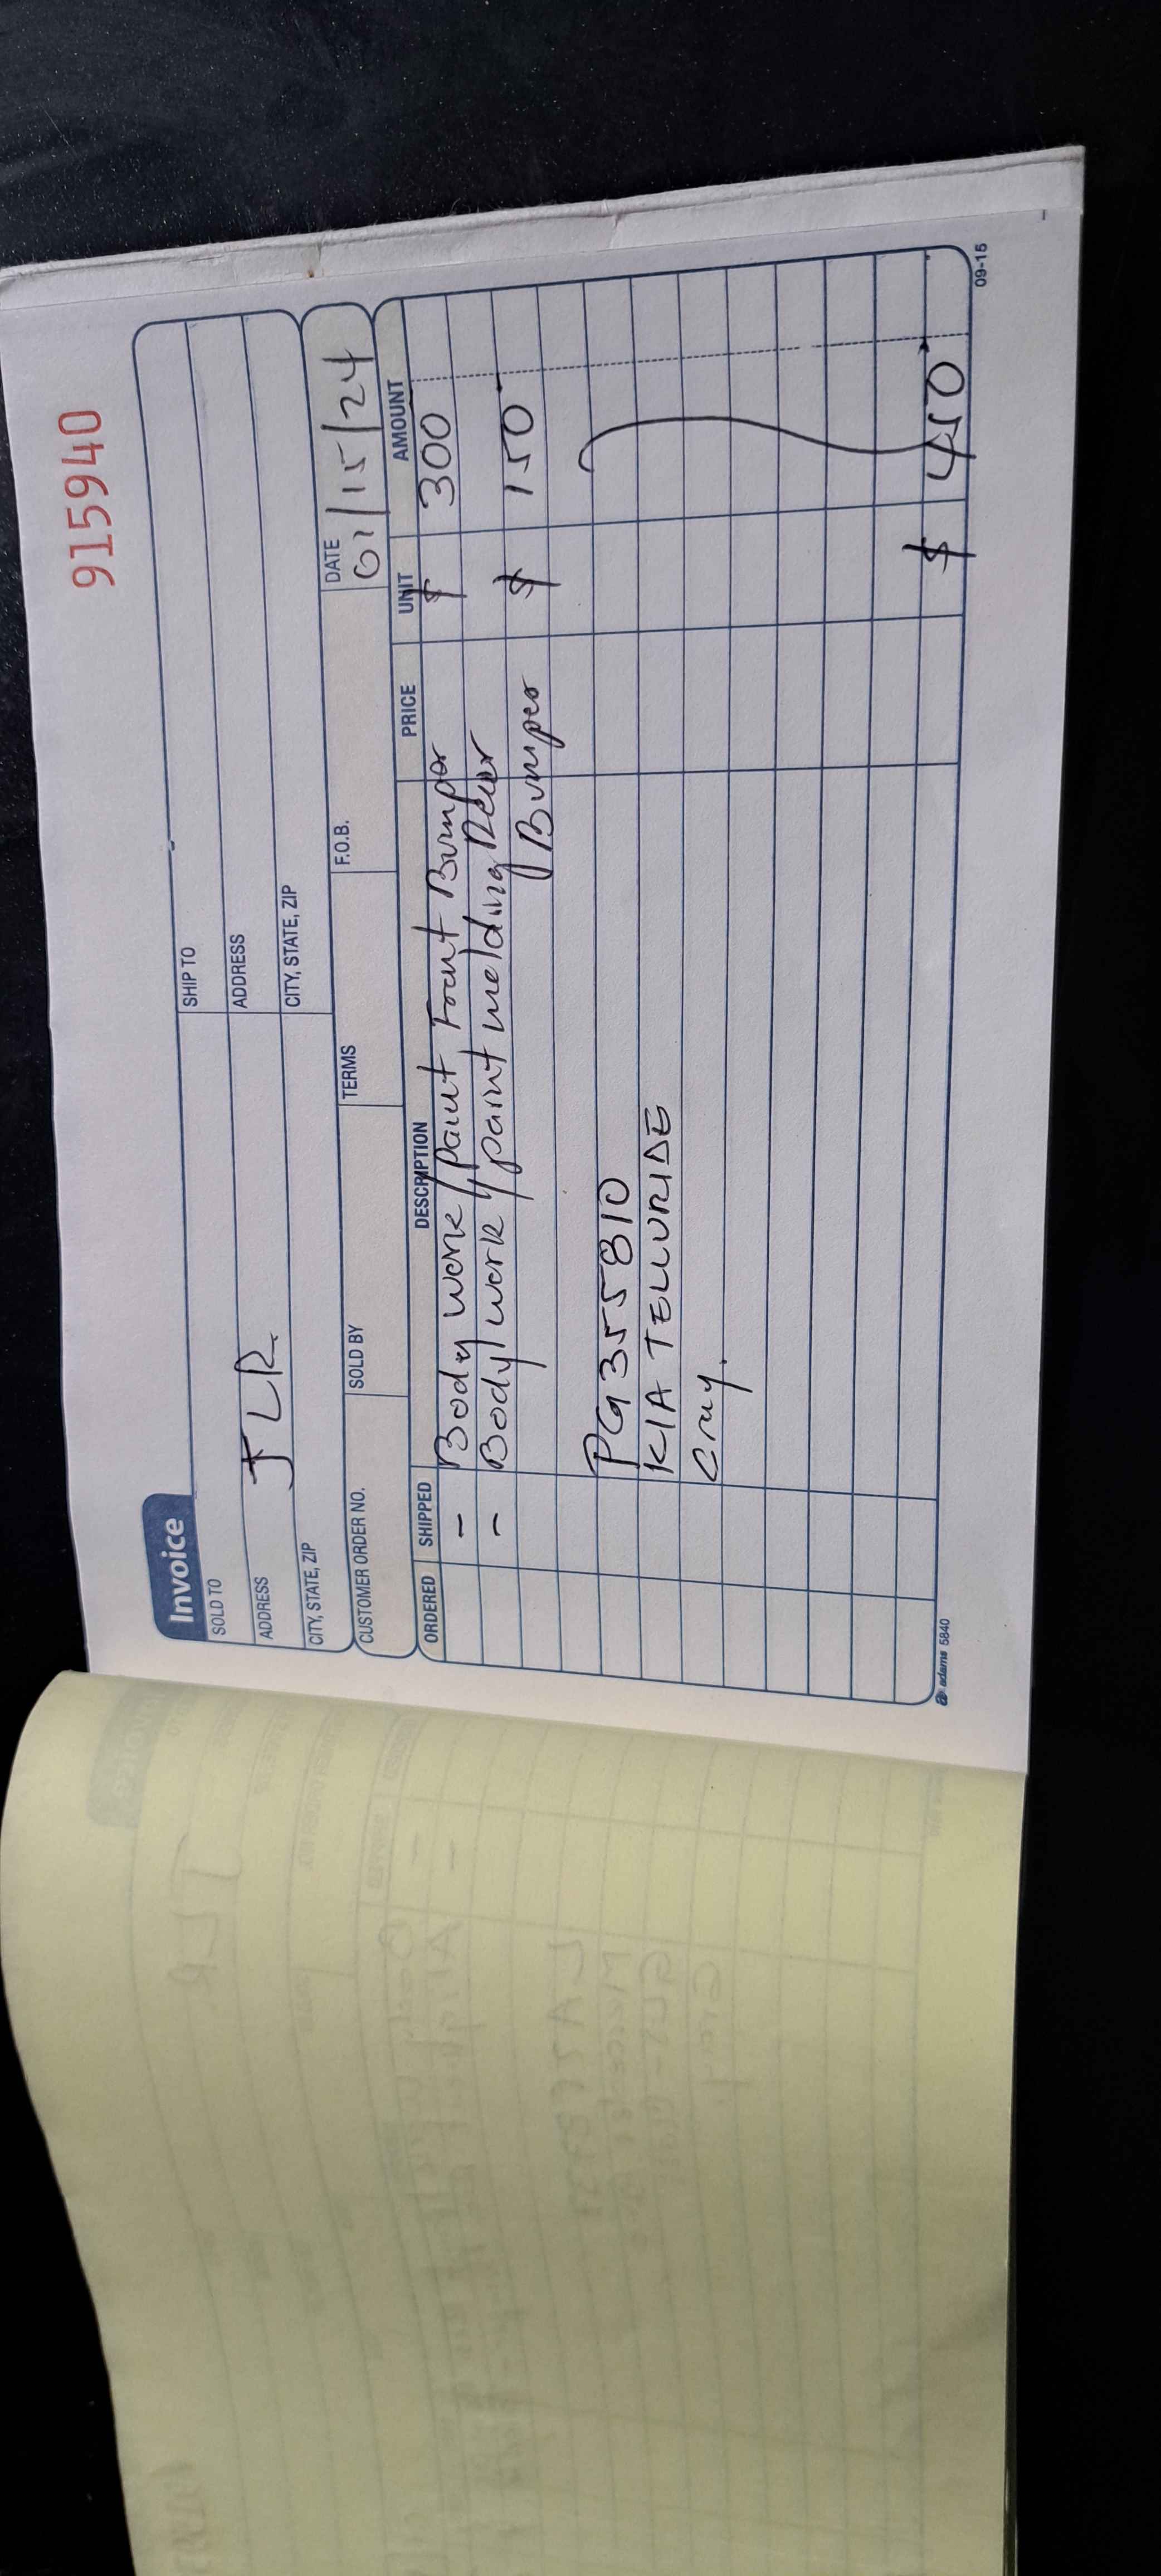 915940
Invoice
SOLD TO
SHIP TO
ADDRESS
JLR
ADDRESS
CITY, STATE, ZIP
CITY, STATE, ZIP
CUSTOMER ORDER NO.
SOLD BY
TERMS
F.O.B.
DATE
01/15/24
ORDERED SHIPPED DESCRIPTION PRICE UNIT AMOUNT
- Body work/paint Front Bumper $ 300
- Body work/paint molding Rear $ 150
Bumper
PG355810
KIA TELLURIDE
Gray.
$ 450
adams 5840
09-15